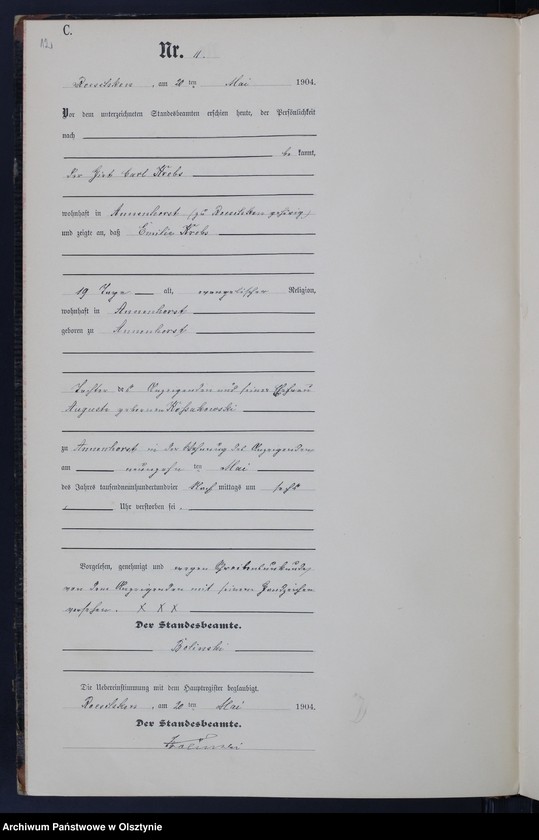 C.
12.
Nr. 11.
Reuschken, am 20 ten Mai 1904.
Vor dem unterzeichneten Standesbeamten erschien heute, der Persönlichkeit
nach
be kannt,
der Hirt Carl Krebs
wohnhaft in Annenhorst (zu Reuschken gehörig)
und zeigte an, daß Emilie Krebs
19 Tage alt, evangelischer Religion,
wohnhaft in Annenhorst
geboren zu Annenhorst
Tochter des Anzeigenden und seiner Ehefrau
Auguste geborenen Kossakowski
zu Annenhorst in der Wohnung des Anzeigenden
am neunzehn ten Mai
des Jahres tausendneunhundertundvier Nach mittags um sechs
Uhr verstorben sei.
Vorgelesen, genehmigt und wegen Schreibensunkunde
von dem Anzeigenden mit seinem Handzeichen
versehen. X X X
Der Standesbeamte.
Die Uebereinstimmung mit dem Hauptregister beglaubigt.
Reuschken, am 20 ten Mai 1904.
Der Standesbeamte.
Archiwum Państwowe w Olsztynie